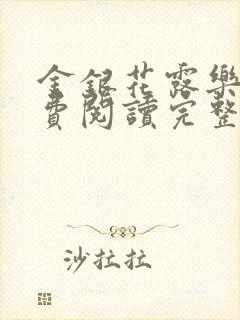 金銀花露樂
費閱讀完整
沙拉拉